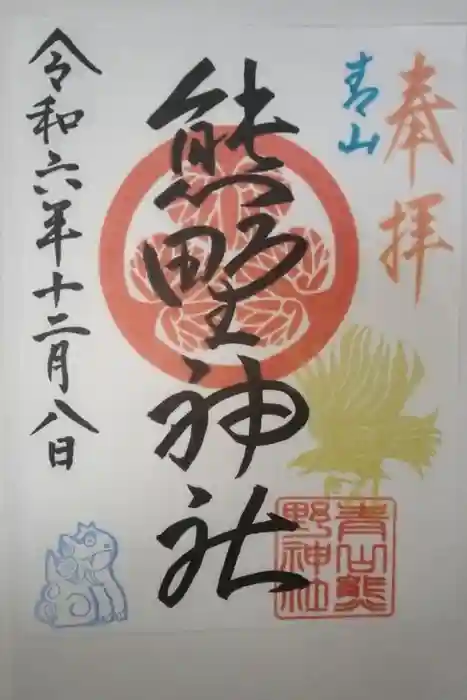 奉拝
青山
熊野神社
令和六年十二月八日
青山熊野神社